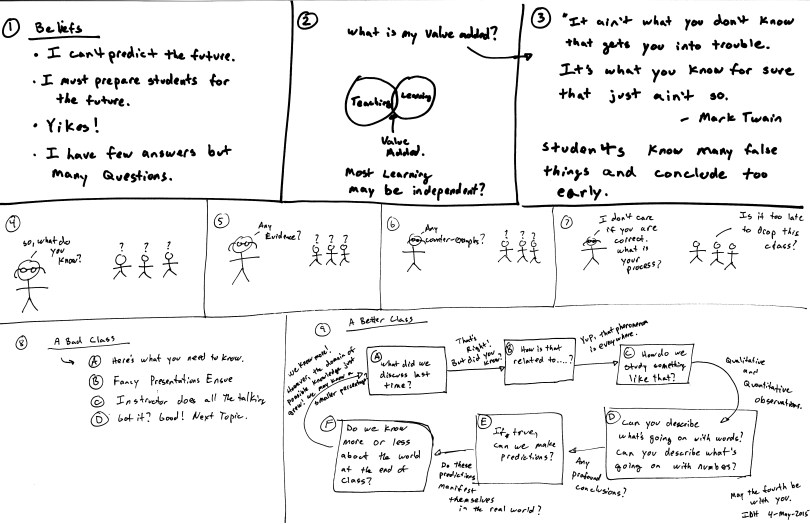 ① Beliefs
• I can't predict the future.
• I must prepare students for
the future.
• Yikes!
• I have few answers but
Many Questions.
②
What is my value added?
Teaching
Learning
Value
Added.
Most Learning
may be independent?
③ "It ain't what you don't know
that gets you into trouble.
It's what you know for sure
that just ain't so.
- Mark Twain
Students know many false
things and conclude too
early.
④
So, what do
you
know?
? ? ?
⑤
Any
Evidence?
? ? ?
⑥
Any
counter-examples?
? ? ?
⑦
I don't care
if you are
correct.
what is
your
process?
Is it too late
to drop this
class?
⑧ A Bad Class
Ⓐ Here's what you need to know.
Ⓑ Fancy Presentations Ensue
Ⓒ Instructor does all the talking
Ⓓ Got it? Good! Next Topic.
⑨ A Better Class
Ⓐ
What did we
discuss last
time?
That's
Right!
But did you
know?
Ⓑ How is that
related to....?
Yup, that phenomenon
is everywhere.
Ⓒ How do we
study something
like that?
Qualitative
and
Quantitative
observations.
Ⓓ
Can you describe
what's going on with words?
Can you describe what's
going on with numbers?
Any
profound
conclusions?
Ⓔ
If true,
can we make
predictions?
Do these
predictions
manifest
themselves
in the real world?
Ⓕ
Do we know
more or less
about the world
at the end of
class?
We know more!
However, the domain of
possible knowledge just
grew! We may know a
smaller percentage
May the fourth be
with you.
IDH 4-May-2015